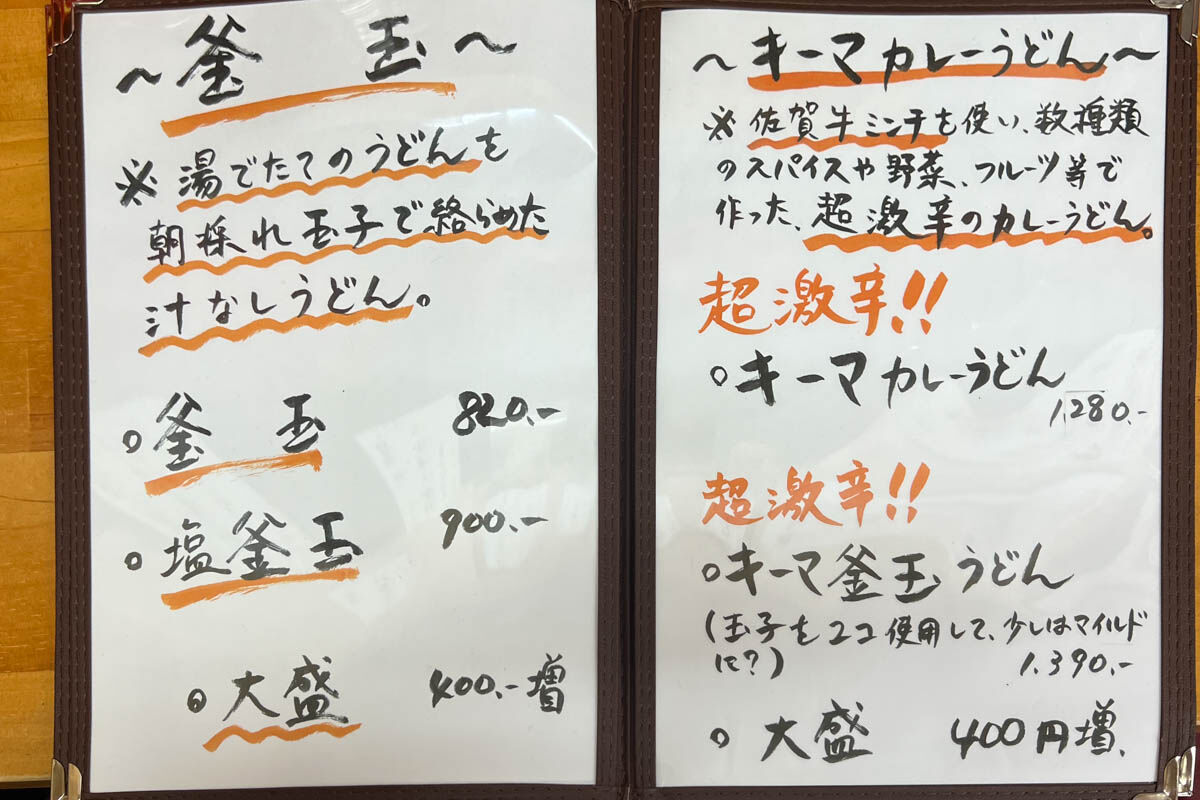 〜釜 玉〜
※湯でたてのうどんを
朝採れ玉子で絡らめた
汁なしうどん。
○釜 玉 820.-
○塩釜玉 900.-
◎大盛 400.-増
〜キーマカレーうどん〜
※佐賀牛ミンチを使い、数種類
のスパイスや野菜、フルーツ等で
作った、超激辛のカレーうどん。
超激辛!!
○キーマカレーうどん
1,280.-
超激辛!!
○キーマ釜玉うどん
(玉子を2コ使用して、少しはマイルド
に?) 1.390.-
○大盛 400円増.